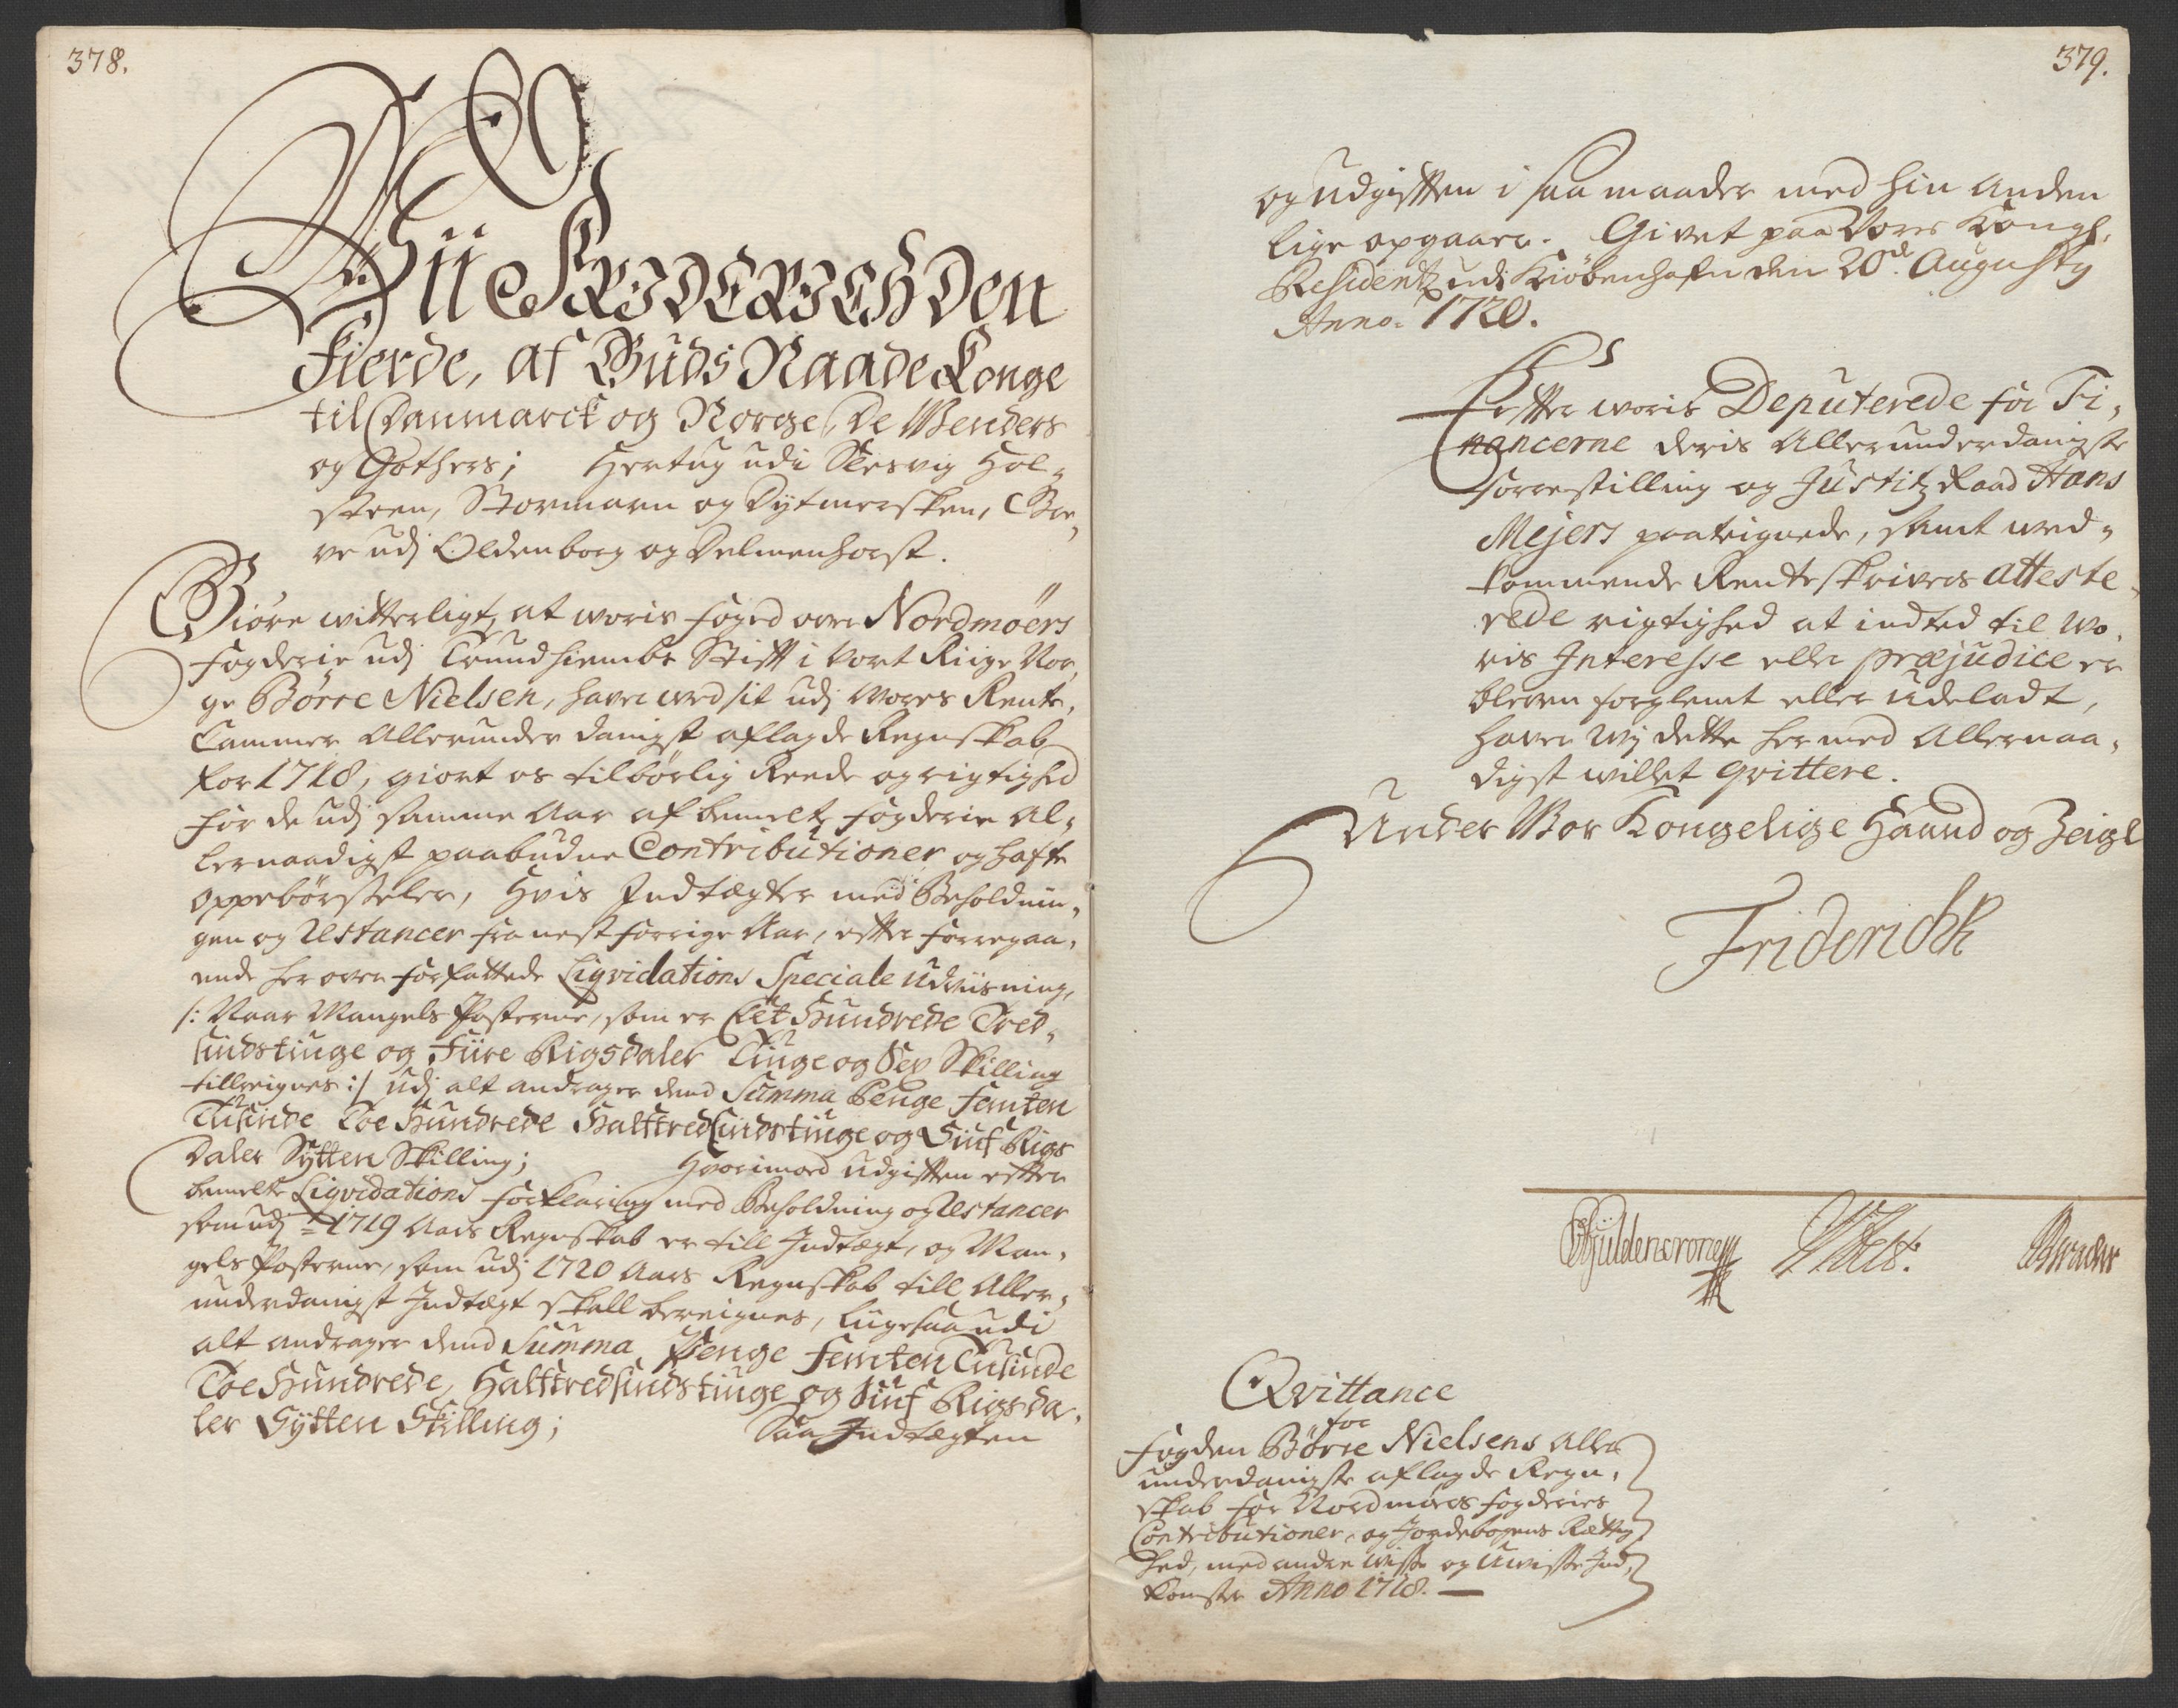 378.
Wii Friderich den
Fierde, af Guds Naade Konge
til Danmarck og Norge, De Wenders
og Gothers; Hertug udi Slesvig Hol-
steen, Stormarn og Dytmersken, Gre-
ve udj Oldenborg og Delmenhorst.
Giøre witterligt, at woris foged over Nordmøers
fogderie udj Trundhiembs Stift i Vort Riige Nor-
ge Børre Nielsen, haver ved sit udj Vores Rente-
Cammer Allerunderdanigst aflagde Regnskab
for 1718, giort os tilbørlig Reede og rigtighed
for de udj samme Aar af bemelte fogderie al-
lernaadigst paabudne Contributioner og hafte
oppebørsteler, Hvis Indtægter med Beholdnin-
gen og Restancer fra nest forrige Aar, efter forregaa-
ende her over forfattede Liqvidations Speciale Udviisning,
/: Naar Mangels Posterne, som er Eet Hundrede Tred-
sindstiuge og Fiire Rigsdaler Tiuge og Sex Skilling
tillreignes :/ udj alt andrager dend Summa Penge Femten
Tusinde Toe Hundrede Halftredsindstiuge og Siuf Rigs
Daler Sytten Skilling; Hvorimod udgiften efter
bemelte Liqvidations forklaring med Beholdning og Restancer
som udj 1719 Aars Regnskab er till Indtægt, og Man-
gels Posterne, som udj 1720 Aars Regnskab till Aller-
underdanigst Indtægt skall bereignes, liigesaa udi
alt andrager dend Summa Penge Femten Tusinde
Toe Hundrede, Halftredsindstiuge og Siuf Rigsda-
ler Sytten Skilling; Saa Indtægten
379.
og Udgiften i saa maader med hin anden
lige opgaaer. Givet paa Vores Kongl.
Residentz udi Kiøbenhafn den 20d. Augusty
Anno. 1720.
Efter woris Deputerede for Fi-
nancerne deris Allerunderdanigste
forrestilling og Justitz Raad Hans
Mejers paateignede, samt ved-
kommende Renteskrivers atteste-
rede rigtighed at indted til Wo-
ris Interesse eller præjudice er
bleven forglemt eller udeladt,
haver Wj dette hermed Allernaa-
digst willet qvittere.
Under Vor Kongelige Haand og Zeigl
Friderich R
Gÿldencrone
Qvittance
for
fogden Børre Nielsens Aller
underdanigste aflagde Regn-
skab for Nordmørs fogderies
Contributioner, og Jordebogens Rettig-
hed, med andre Wisse og Uwisse Ind-
komster Anno 1718.